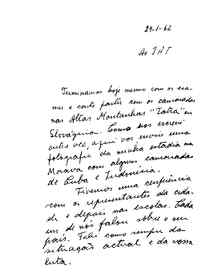 29-1-62
Ao IAT
Terminamos hoje mesmo com os exa-
mes e conto partir com os camaradas
nas Altas Montanhas "Tatra" na
Como nos escrevi
outra vez, aqui vos envio uma
fotografia da minha estadia na
Moravia com alguns camaradas
de Cuba e Indonésia.
Tivemos uma conferência
com os representantes da cida-
de e depois nas escolas. Cada
um de nós falou sobre o seu
país. Falei como sempre da
situação actual e da nossa
luta.